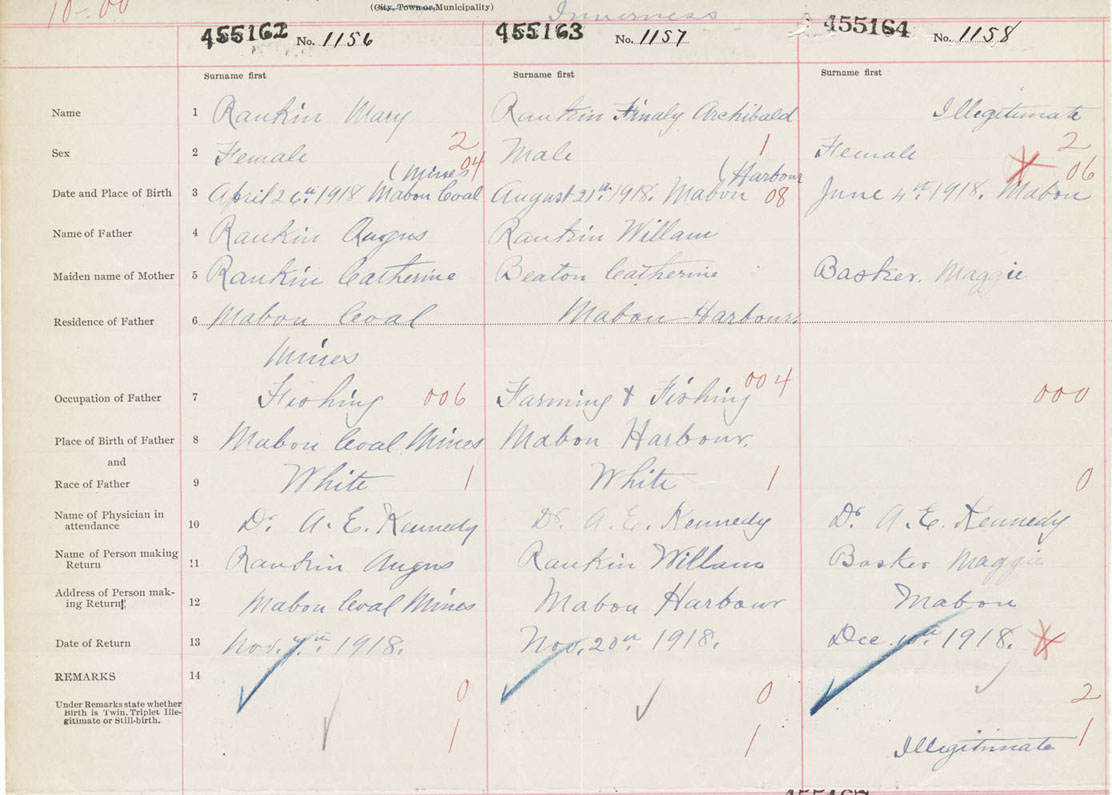 10-00
(City, Town or Municipality)
Inverness
455162 No. 1156 455163 No. 1157 455164 No. 1158
Surname first Surname first Surname first
Name 1 Rankin Mary Rankin Finaly Archibald Illegitimate
Sex 2 Female 2 Male 1 Female 2
(Mines 04 (Harbour 06
Date and Place of Birth 3 April 26th 1918 Mabou Coal August 21th 1918. Mabou 08 June 4th 1918. Mabou
Name of Father 4 Rankin Angus Rankin Willam
Maiden name of Mother 5 Rankin Catherine Beaton Catherine Basker. Maggie
Residence of Father 6 Mabou Coal Mabou Harbour.
Mines
Occupation of Father 7 Fishing 006 Farming & Fishing 004 000
Place of Birth of Father 8 Mabou Coal Mines Mabou Harbour.
and
Race of Father 9 White 1 White 1 0
Name of Physician in
attendance 10 Dr. A. E. Kennedy Dr. A. E. Kennedy Dr. A. E. Kennedy
Name of Person making
Return 11 Rankin Angus Rankin Willam Basker Maggie
Address of Person mak-
ing Return 12 Mabou Coal Mines Mabou Harbour Mabou
Date of Return 13 Nov. 7th 1918. Nov. 20th 1918. Dec. 1918.
REMARKS 14
Under Remarks state whether
Birth is Twin, Triplet Ille-
gitimate or Still-birth.
0 0 2
1 1 Illegitimate 1